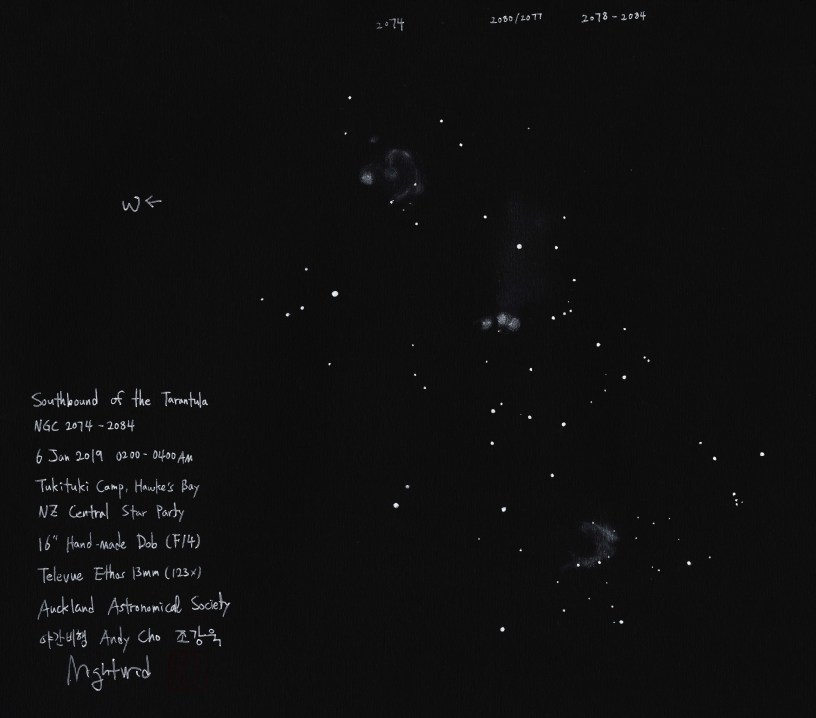 2074 2080/2077 2078-2084
W←
Southbound of the Tarantula
NGC 2074-2084
6 Jan 2019 0200-0400 AM
Tukituki Camp, Hawke's Bay
NZ Central Star Party
16" Hand-made Dob (F/4)
Televue Ethos 13mm (123x)
Auckland Astronomical Society
야간비행 Andy Cho 조강욱
Nightwid